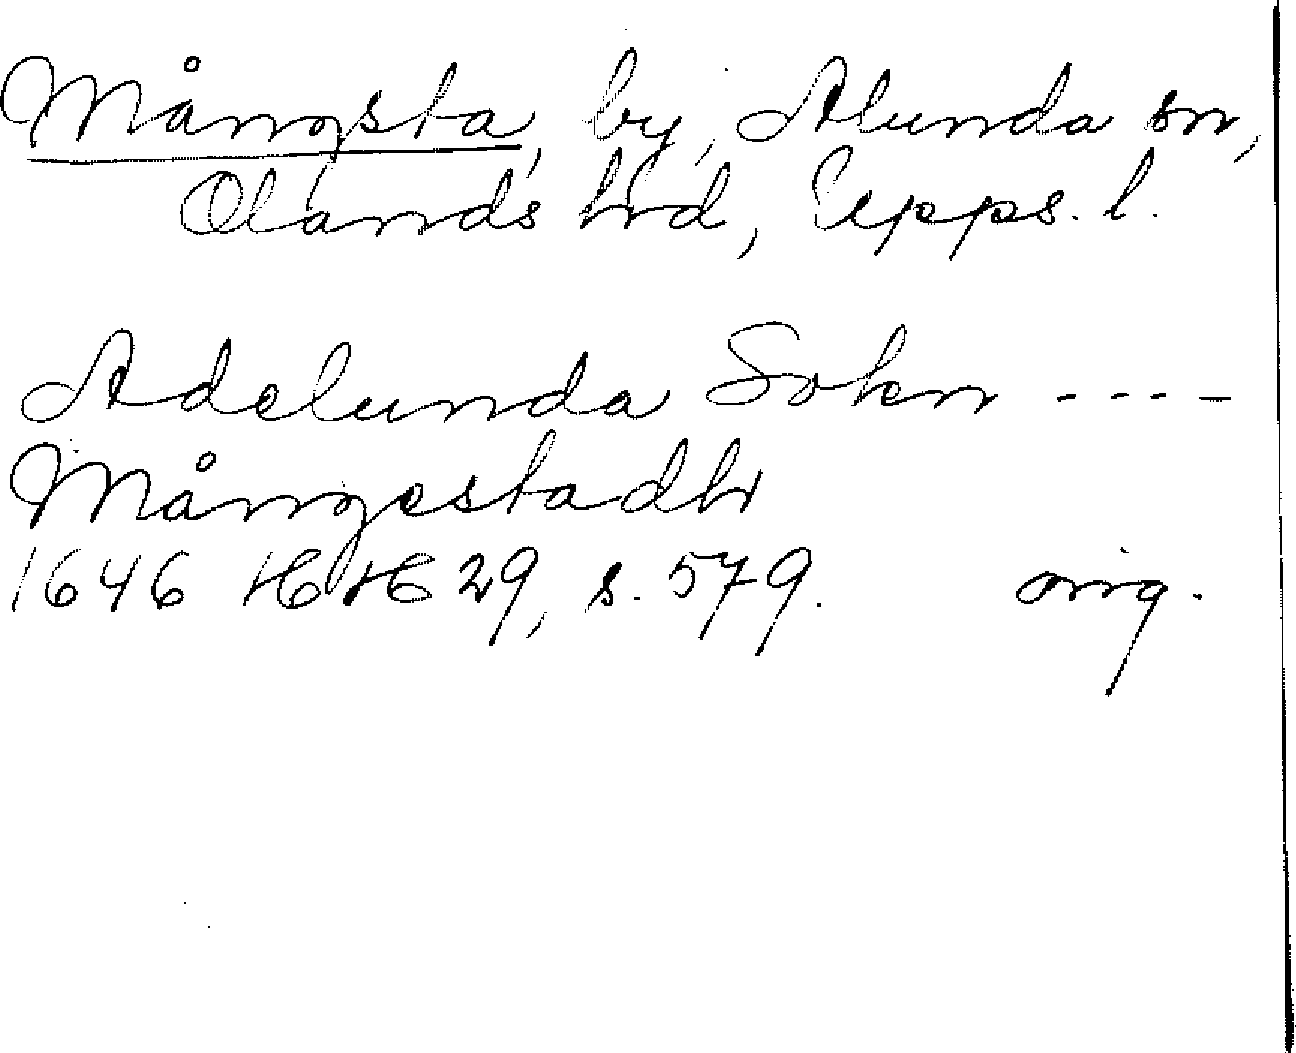 Mångsta, by, Alunda sn,
Olands hrd, Upps. l.
Adelunda Sokn ----
Mångestadh
1646 HH 29, s. 579. orig.